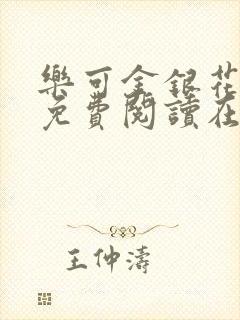 樂可金銀花
免費閱讀在
王仲濤